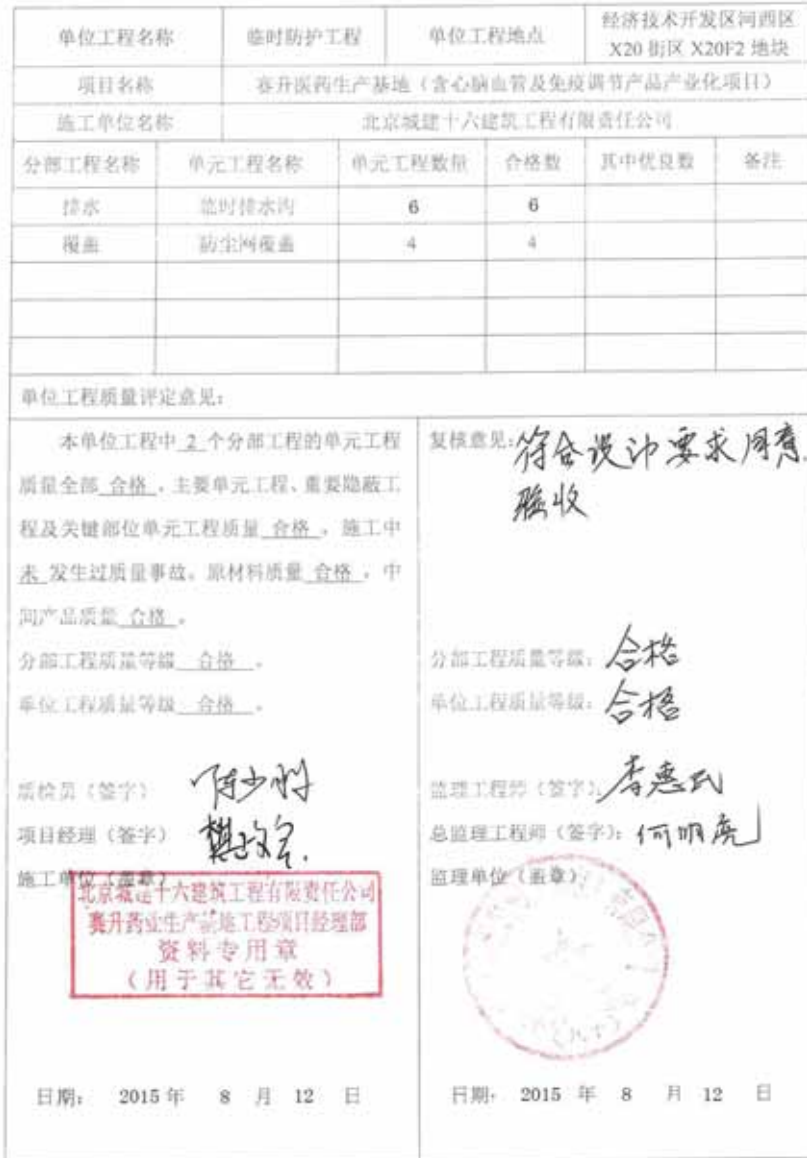 单位工程名称 临时防护工程 单位工程地点 经济技术开发区河西区
X20 街区 X20F2 地块
项目名称 赛升医药生产基地（含心脑血管及免疫调节产品产业化项目）
施工单位名称 北京城建十六建筑工程有限责任公司
分部工程名称 单元工程名称 单元工程数量 合格数 其中优良数 备注
排水 临时排水沟 6 6
覆盖 防尘网覆盖 4 4
单位工程质量评定意见：
本单位工程中 2 个分部工程的单元工程
质量全部 合格 ，主要单元工程、重要隐蔽工
程及关键部位单元工程质量 合格 ，施工中
未 发生过质量事故。原材料质量 合格 ，中
间产品质量 合格 。
分部工程质量等级 合格 。
单位工程质量等级 合格 。
质检员（签字）
项目经理（签字）
施工单位（盖章）
北京城建十六建筑工程有限责任公司
赛升药业生产基地工程项目经理部
资料专用章
（用于其它无效）
日期： 2015 年 8 月 12 日
复核意见：符合设计要求同意
验收
分部工程质量等级：合格
单位工程质量等级：合格
监理工程师（签字）：李惠民
总监理工程师（签字）：何明亮
监理单位（盖章）
日期： 2015 年 8 月 12 日